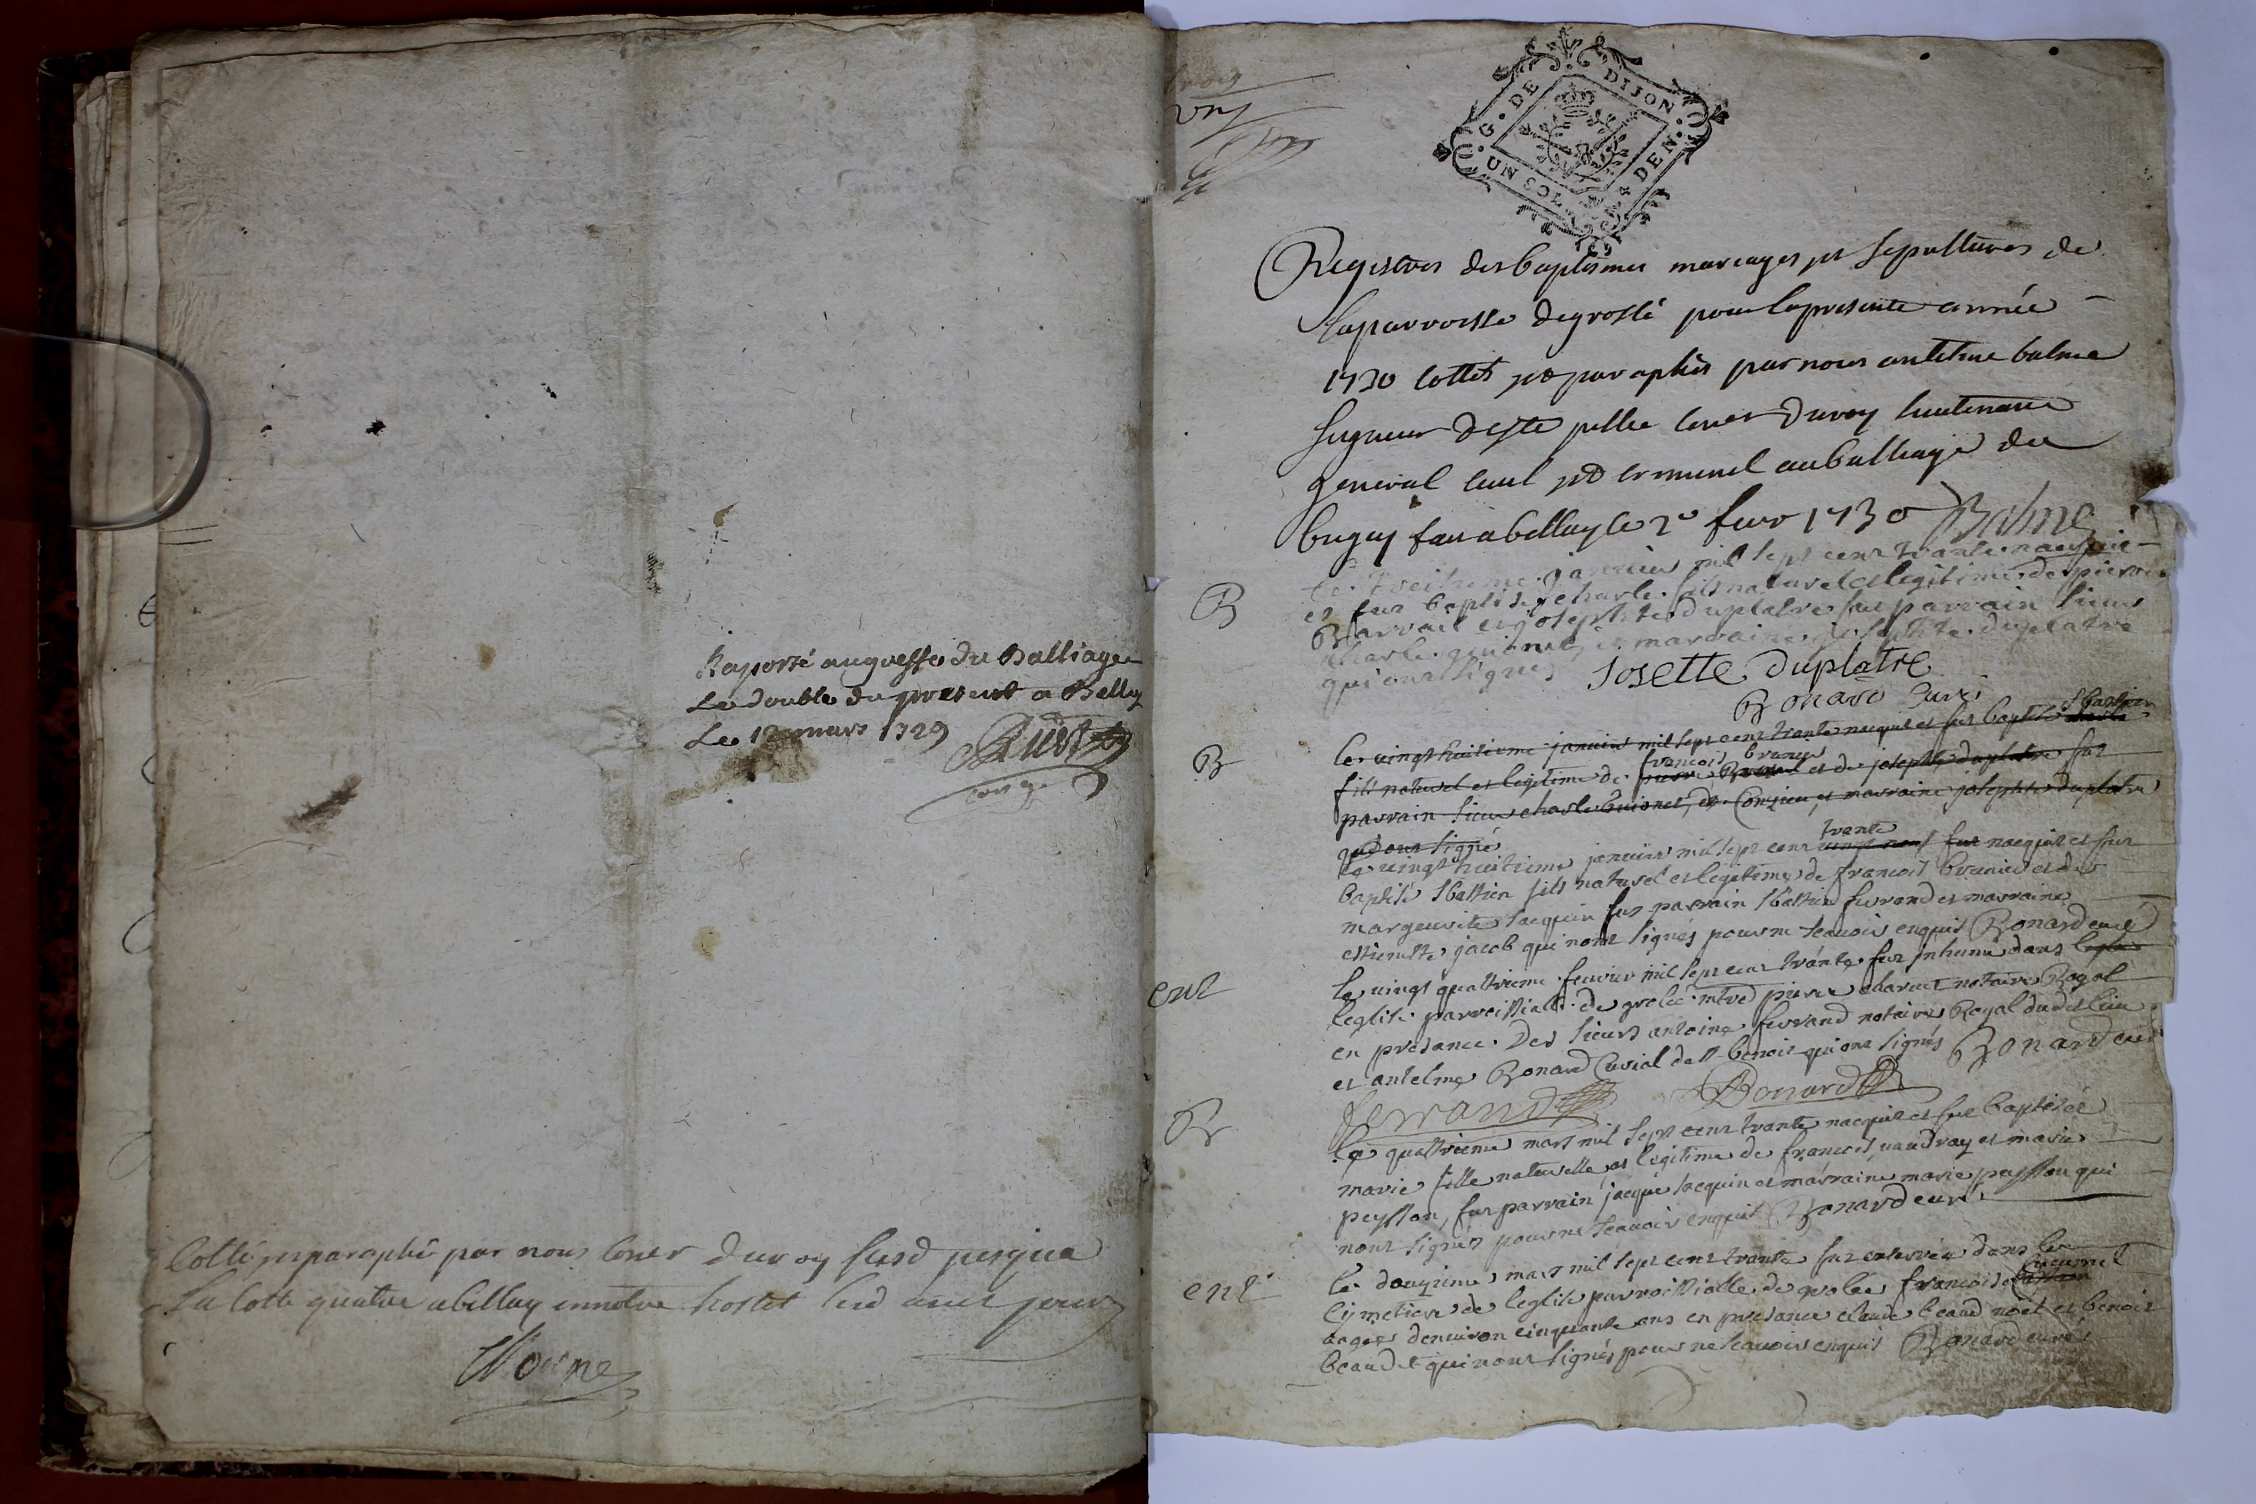 Raporté au greffe du Balliage
Le double du present a Belley
Le 12 mars 1729
Cotté et paraphé par nous Coner du roy susd jusqua
La Cotte quatre a belley en notre hostel led an et jour
G. DE DIJON
UN SOL 4 DEN.
Registres des baptesmes mariages et sepultures de
la parroisse de groslé pour la presente année
1730 cottés et paraphés par nous antelme balme
seigneur de ste Coner du roy lieutenant
general civil et criminel au balliage de
bugey fait a belley le 2e 1730 Balme
B
Le treizieme janvier mil sept cent trante nacquit
et fut baptisé charle fils naturel et legitime de pierre
Barrail et josephte duplatre fut parrain sieur
charle guionet et marraine josephte duplatre
qui ont signé Josette duplatre
Bonard Curé
B
sbastien
le vingt huitieme janvier mil sept cent trante nacquit et fut baptisé
francois
fils naturel et legitime de et de josephte duplatre fut
parrain sieur charle Guionet, de Conzieu, et marraine josephte duplatre
qui ont signé
trante
le vingt huitieme janvier mil sept cent vingt neuf fut nacquit et fut
baptisé sbastien fils naturel et legitime de francois et de
marguerite jacquin fut parrain sbastien ferrand et marraine
jacob qui nont signés pour ne scavoir enquis Bonard curé
ent
le vingt quattrieme fevrier mil sept cent trante fut inhumé dans leglise
leglise parroissialle de grolée mtre pierre notaire Royal
en presance des sieurs antoine ferrand notaire Royal dudit lieu
et antelme Bonard Curial de st benoit qui ont signés Bonard curé
ferrand Bonard
B
le quattrieme mars mil sept cent trante nacquit et fut baptisée
marie fille naturelle et legitime de francois vaudray et marie
peysson, fut parrain jacque jacquin et marraine marie peysson qui
nont signés pour ne scavoir enquis Bonard curé
ent
le douzieme mars mil sept cent trante fut enterrée dans le
cymetiere de leglise parroissialle de grolée francoise
aagee denviron cinquante ans en presance claude beaud noel et benoit
beaudet qui nont signés pour ne scavoir enquis Bonard curé